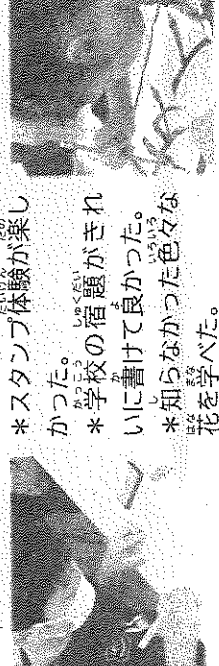 *スタンプ体験が楽し
かった。
*学校の宿題がきれ
いに書けて良かった。
*知らなかった色々な
花を学べた。